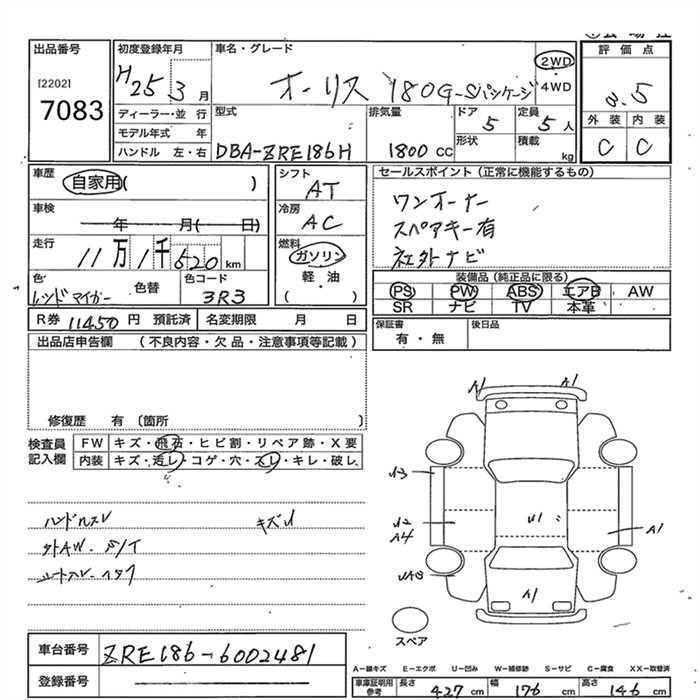 出品番号
[2202]
7083
初度登録年月
H25 3 月
ディーラー・並 行
モデル年式 年
ハンドル 左・右
車名・グレード
オーリス 180G-Sパッケージ
2WD
4WD
型式
DBA-ZRE186H
排気量
1800 cc
ドア
5
形状
定員
5 人
積載
kg
評 価 点
3.5
外 装 内 装
C C
車歴
自家用( )
車検
年 月( 日)
走行
11万1千620 km
色
レッドマイカー
色替
色コード
3R3
シフト
AT
冷房
AC
燃料
ガソリン
軽・油
( )
R券 11450 円 預託済 名変期限 月 日
セールスポイント(正常に機能するもの)
ワンオーナー
スペアキー有
社外ナビ
装備品(純正品に限る)
PS PW ABS エアB AW
SR ナビ TV 本革
保証書
有・無
後日品
出品店申告欄 (不良内容・欠品・注意事項等記載)
修復歴 有 〔箇所 〕
検査員
記入欄
FW キズ・飛石・ヒビ割・リペア跡・X要
内装 キズ・汚レ・コゲ・穴・スレ・キレ・破レ
ハンドルスレ キズ小
A1 A1
A3
A2
A4
U1
A1
A1
スペア
車台番号 ZRE186-6002481
登録番号
A-線キズ E-エクボ U-凹み W-補修跡 S-サビ C-腐食 XX-取替済
車庫証明用
参考
長さ 427 cm 幅 176 cm 高さ 146 cm